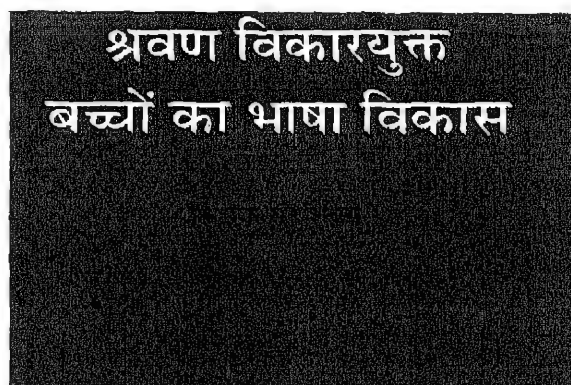 श्रवण विकारयुक्त
बच्चों का भाषा विकास